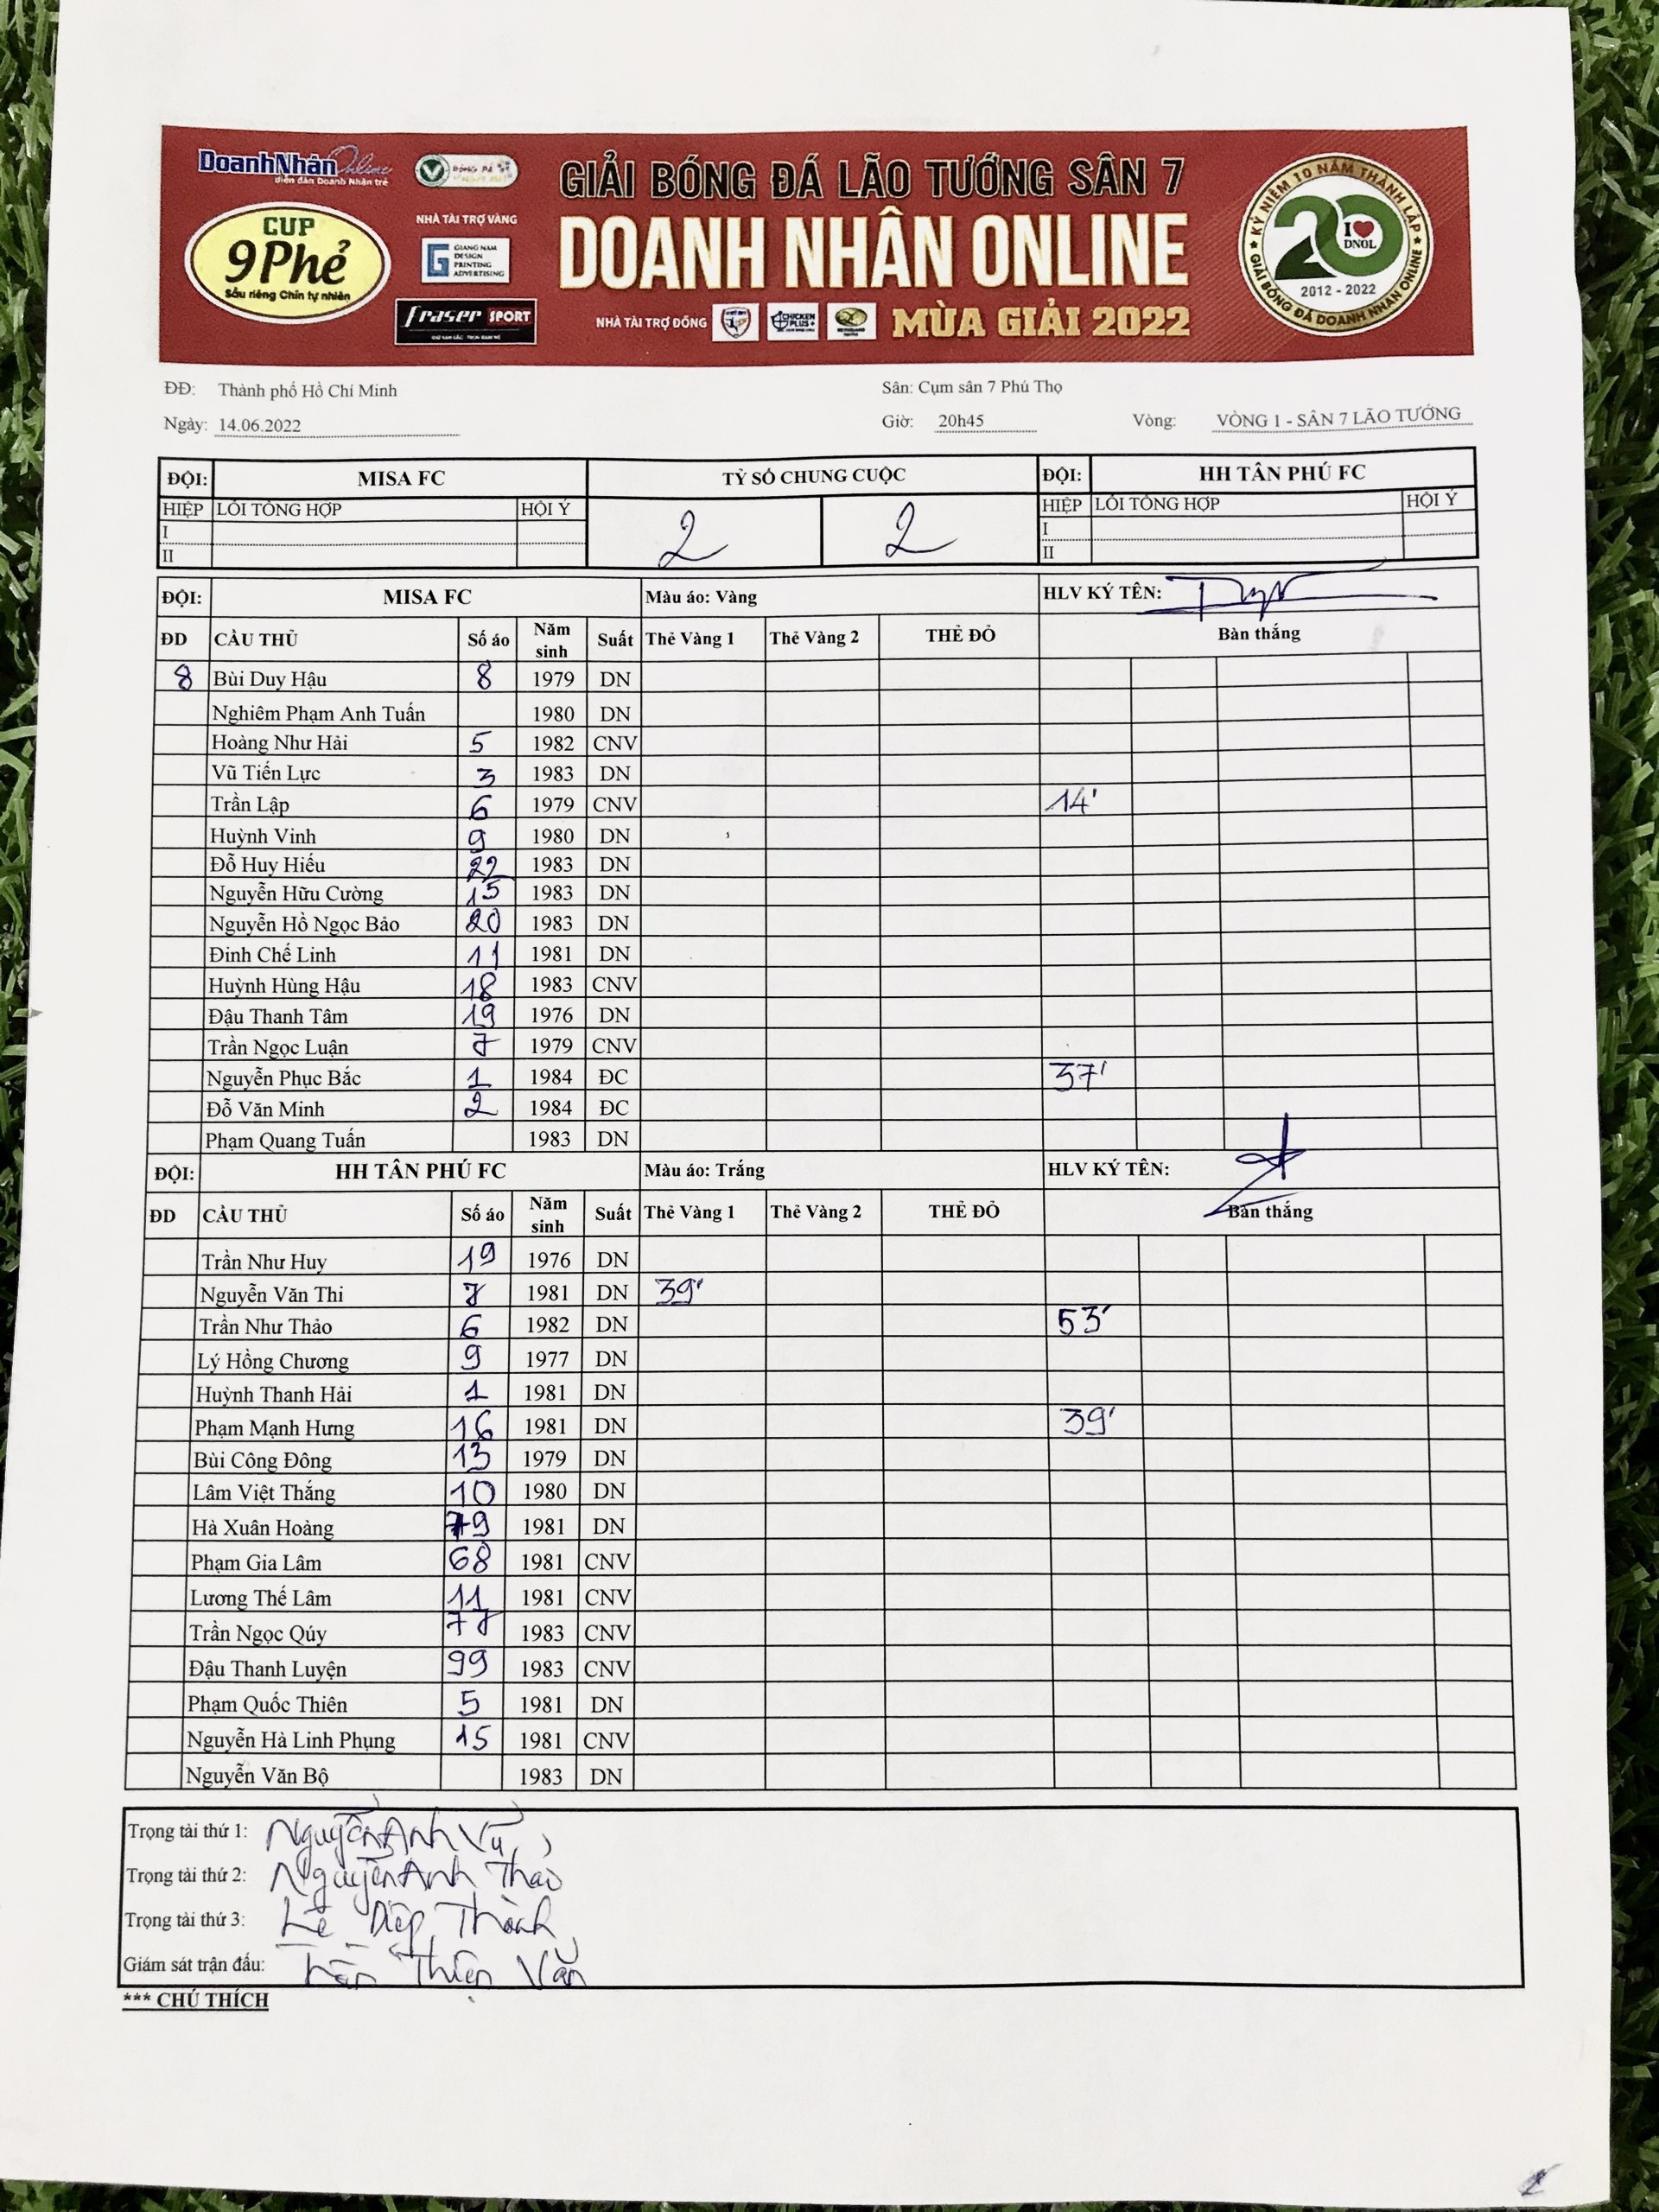 DoanhNhân Online
diễn đàn Doanh Nhân trẻ
CUP
9Phẻ
Sầu riêng Chín tự nhiên
NHÀ TÀI TRỢ VÀNG
GIANG NAM
DESIGN
PRINTING
ADVERTISING
fraser SPORT
GIẢI BÓNG ĐÁ LÃO TƯỚNG SÂN 7
DOANH NHÂN ONLINE
NHÀ TÀI TRỢ ĐỒNG
CHICKEN PLUS+
MÙA GIẢI 2022
KỶ NIỆM 10 NĂM THÀNH LẬP
20
I ❤ DNOL
2012 - 2022
GIẢI BÓNG ĐÁ DOANH NHÂN ONLINE
ĐĐ: Thành phố Hồ Chí Minh Sân: Cụm sân 7 Phú Thọ
Ngày: 14.06.2022 Giờ: 20h45 Vòng: VÒNG 1 - SÂN 7 LÃO TƯỚNG
ĐỘI: MISA FC TỶ SỐ CHUNG CUỘC ĐỘI: HH TÂN PHÚ FC
HIỆP LỖI TỔNG HỢP HỘI Ý 2 2 HIỆP LỖI TỔNG HỢP HỘI Ý
I I
II II
ĐỘI: MISA FC Màu áo: Vàng HLV KÝ TÊN:
ĐD CẦU THỦ Số áo Năm sinh Suất Thẻ Vàng 1 Thẻ Vàng 2 THẺ ĐỎ Bàn thắng
8 Bùi Duy Hậu 8 1979 DN
Nghiêm Phạm Anh Tuấn 1980 DN
Hoàng Như Hải 5 1982 CNV
Vũ Tiến Lực 3 1983 DN
Trần Lập 6 1979 CNV 14'
Huỳnh Vinh 9 1980 DN
Đỗ Huy Hiếu 22 1983 DN
Nguyễn Hữu Cường 15 1983 DN
Nguyễn Hồ Ngọc Bảo 20 1983 DN
Đinh Chế Linh 11 1981 DN
Huỳnh Hùng Hậu 18 1983 CNV
Đậu Thanh Tâm 19 1976 DN
Trần Ngọc Luận 7 1979 CNV
Nguyễn Phục Bắc 1 1984 ĐC 37'
Đỗ Văn Minh 2 1984 ĐC
Phạm Quang Tuấn 1983 DN
ĐỘI: HH TÂN PHÚ FC Màu áo: Trắng HLV KÝ TÊN:
ĐD CẦU THỦ Số áo Năm sinh Suất Thẻ Vàng 1 Thẻ Vàng 2 THẺ ĐỎ Bàn thắng
Trần Như Huy 19 1976 DN
Nguyễn Văn Thi 7 1981 DN 39'
Trần Như Thảo 6 1982 DN 53'
Lý Hồng Chương 9 1977 DN
Huỳnh Thanh Hải 1 1981 DN
Phạm Mạnh Hưng 16 1981 DN 39'
Bùi Công Đông 13 1979 DN
Lâm Việt Thắng 10 1980 DN
Hà Xuân Hoàng 79 1981 DN
Phạm Gia Lâm 68 1981 CNV
Lương Thế Lâm 11 1981 CNV
Trần Ngọc Qúy 77 1983 CNV
Đậu Thanh Luyện 99 1983 CNV
Phạm Quốc Thiên 5 1981 DN
Nguyễn Hà Linh Phụng 15 1981 CNV
Nguyễn Văn Bộ 1983 DN
Trọng tài thứ 1: Nguyễn Anh Vũ
Trọng tài thứ 2: Nguyễn Anh Thảo
Trọng tài thứ 3: Lê Diệp Thành
Giám sát trận đấu: Trần Thiện Văn
*** CHÚ THÍCH